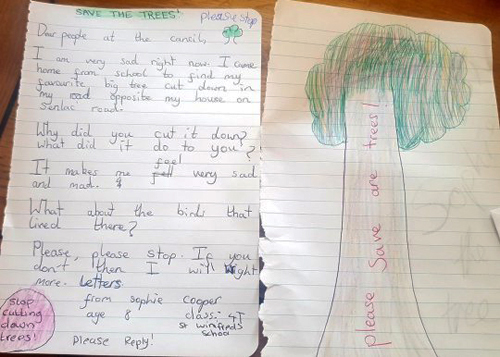 SAVE THE TREES!
please stop
Dear people at the cancil,
I am very sad right now. I came
home from school to find my
favourite big tree cut down in
my road opposite my house on
Senlac road.
Why did you cut it down?
What did it do to you?
It makes me feel very sad
and mad.
What about the birds that
lived there?
Please, please stop. If you
don't then I will wright
more. Letters
from sophie cooper
age 8 class: 4T
st winifreds
school
Please Reply!
stop
cutting
down
trees!
please Save are trees!